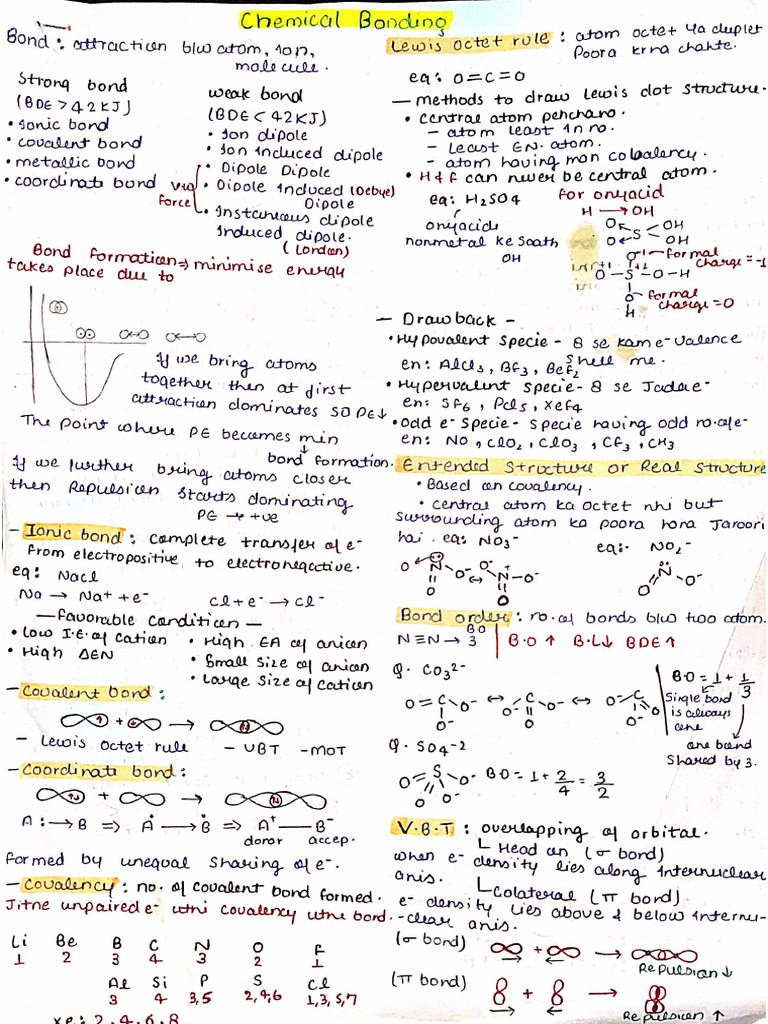 Chemical Bonding
Bond : attraction b/w atom, ion,
molecule.
Strong bond
(BDE > 42 KJ)
• ionic bond
• covalent bond
• metallic bond
• coordinate bond
weak bond
(BDE < 42KJ)
• Ion dipole
• Ion induced dipole
• Dipole Dipole
• Dipole induced (Debye)
Dipole
• Instaneous dipole
Induced dipole.
(London)
Force
Bond formation ⇒ minimise energy
takes place due to
If we bring atoms
together then at first
attraction dominates so PE↓
The point where PE becomes min
↓
bond formation.
If we further bring atoms closer
then Repulsion starts dominating
PE → +ve
- Ionic bond : complete transfer of e⁻
from electropositive to electronegative.
eq : Nacl
Na → Na+ + e⁻ cl + e⁻ → cl⁻
— Favorable condition —
• Low I.E of cation • High EA of anion
• High ΔEN • Small size of anion
• Large size of cation
- Covalent bond :
- Lewis Octet rule - VBT - MOT
- Coordinate bond :
A: → B ⇒ A → B ⇒ A⁺ — B⁻
donor accep.
formed by unequal sharing of e⁻.
- Covalency : no. of covalent bond formed.
Jitne unpaired e⁻ utni covalency utne bond.
Li Be B C N O F
1 2 3 4 3 2 1
Al Si P S Cl
3 4 3,5 2,4,6 1,3,5,7
xe : 2,4,6,8
Lewis octet rule : atom octet ya duplet
Poora krna chahte.
eq : O=C=O
— methods to draw lewis dot structure.
• central atom pehchano.
- atom least in no.
- least EN. atom.
- atom having man covalency.
• H & f can never be central atom.
eq : H₂SO4 for onyacid
H → OH
onyacids
nonmetal ke saath
OH
O S OH
O OH
O -1 ← formal charge = -1
O — S — O — H
O ← formal charge = 0
H
— Drawback -
• Hypovalent specie - 8 se kam e⁻ valence
shell me.
en : Alcl₃, Bf₃, Bef₂
• Hypervalent specie - 8 se Jadae⁻
en : SF₆, Pcl₅, xef₄
• Odd e⁻ specie - specie having odd no. of e⁻
en : NO, clO₂, clO₃, CF₃, CH₃
Entended structure or Real structure
• Based on covalency.
• central atom ka octet nhi but
surrounding atom ka poora hona Jaroori
hai. eq : NO₃⁻ eq :- NO₂⁻
O N O⁻ ↔ O⁻ N⁺ O⁻
O O
N
O O⁻
Bond order : no. of bonds b/w two atom.
N≡N → 3 B.O | B.O ↑ B.L↓ BDE↑
Q. CO₃²⁻
O=C—O⁻ ↔ C ↔ C
B.O = 1 + 1/3
Single bond
is always
one
one bond
shared by 3.
Q. SO4⁻²
O=S—O⁻ B.O = 1 + 2/4 = 3/2
V.B.T : overlapping of orbital.
Head on (σ bond)
when e⁻ density lies along internuclear
anis.
Colateral (π bond)
e⁻ density lies above & below internu-
-clear anis.
(σ bond)
Repulsion ↓
(π bond)
Repulsion ↑